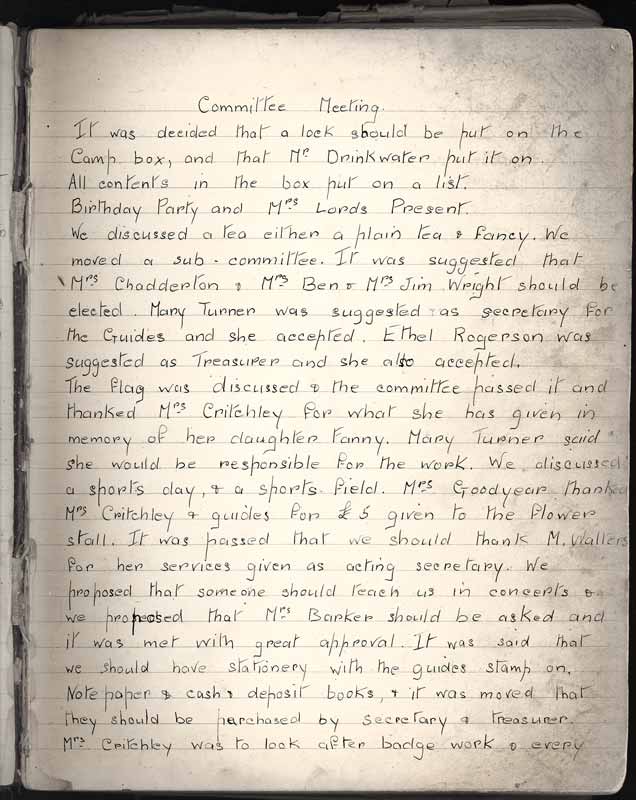 Committee Meeting.
It was decided that a lock should be put on the
Camp box, and that Mr Drinkwater put it on.
All contents in the box put on a list.
Birthday Party and Mrs Lords Present.
We discussed a tea either a plain tea & fancy. We
moved a sub-committee. It was suggested that
Mrs Chadderton & Mrs Ben & Mrs Jim Wright should be
elected. Mary Turner was suggested as secretary for
the Guides and she accepted. Ethel Rogerson was
suggested as Treasurer and she also accepted.
The flag was discussed & the committee passed it and
thanked Mrs Critchley for what she has given in
memory of her daughter Fanny. Mary Turner said
she would be responsible for the work. We discussed
a sports day, & a sports field. Mrs Goodyear thanked
Mrs Critchley & guides for £5 given to the flower
stall. It was passed that we should thank M. Walters
for her services given as acting secretary. We
proposed that someone should teach us in concerts &
we proposed that Mrs Barker should be asked and
it was met with great approval. It was said that
we should have stationery with the guides stamp on.
Note paper & cash & deposit books, & it was moved that
they should be purchased by secretary & treasurer.
Mrs Critchley was to look after badge work & every